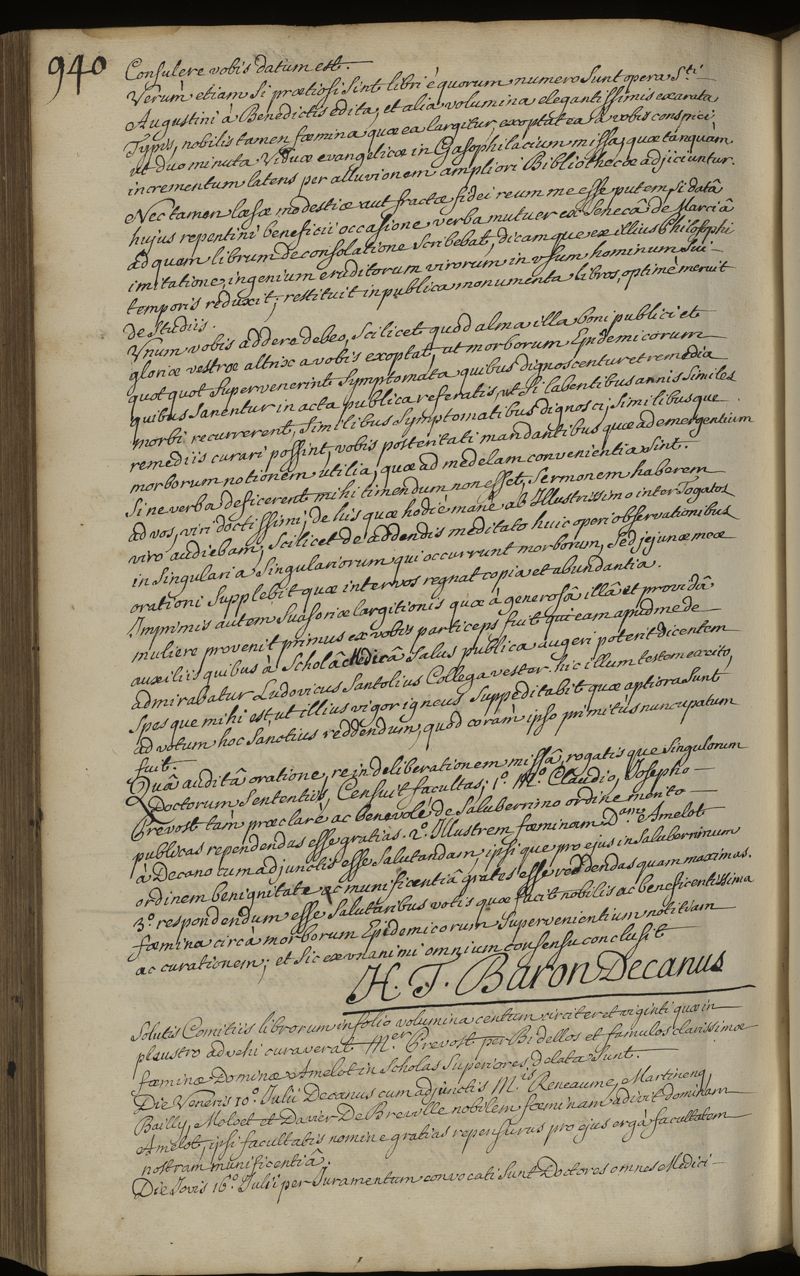 940
Consulere vobis datum est.
Verùm etiam si prætiosi sint libri è quorum numero sunt opera Sti
Augustini à Benedictis edita, et alia volumina elegantissimis exarata
Typis, nobilis tamen fœmina quæ ea largitur exoptat ea à vobis conspici
ut duo minuta Viduæ evangelicæ in Gasophilacium missa, quæ tanquam
incrementum latens per alluvionem ampliori Bibliothecæ adjiciuntur.
Nec tamen læsæ modestiæ aut fractæ fidei reum me esse putem si datâ
hujus repentini beneficii occasione verba mutuer ex Senecâ de Marciâ
ad quam librum de consolatione scribebat, dicamque ex illius Philosophi
imitatione, ingenium eruditorum virorum in usum hominum sui
temporis reduxit, restituit in publica monumenta libros, optimè meruit
de studiis.
Unum vobis addere debeo, scilicet quod alma illa boni publici et
gloriæ vestræ altrix a vobis exoptat, ut morborum Epidemicorum
quotquot supervenerint symptomata quibus dignoscentur et remedia
quibus sanentur in acta publica referatis, ut si labentibus annis similes
morbi recurrerent, similibus symptomatibus dignosci, similibusque
remediis curari possint, vobis posteritati mandantibus quæ ad emergentium
morborum notionem utilia, quæ ad medelam convenientia sint.
Si ne verba deficerent mihi timendum non esset, sermonem haberem
ad vos, viri doctissimi, de his quæ hodiè manè ab Illustrissimo inter Togatos
viro audiebam, scilicet de addendis meditato huic operi observationibus
in singularia singulariorum qui occurrunt morborum, sed jejunæ meæ
orationi supplebit quæ inter vos regnat copia et abundantia.
Imprimis autem suasoriæ largitionis quæ à generosâ illâ et providâ
muliere provenit primus ex vobis particeps fuit qui eam apud me de
auxiliis quibus à Scholâ Medicâ salus publica augeri poterit dicentem
admirabatur Ludovicus Santolius Collega vester. hic illum testem excito,
spesque mihi est, ut illius vigor igneus suppeditabit quæ aptiora sunt
ad votum hoc sanctius reddendum, quod coràm ipso primitùs nuncupatum
fuit.
Quâ auditâ oratione, re in deliberationem missâ, rogatisque singulorum
Doctorum sententiis, Censuit facultas; 1o. Mo. Claudio, Josepho
Prevost tàm præclarè ac benevolè de saluberrimo ordine merito
publicas rependendas esse gratias. 2o. Illustrem fœminam Dam Amelot
à Decano cum adjunctis esse salutandam ipsique pro ejus in saluberrimum
ordinem benignitate ac munificentiâ grates esse reddendas quam maximas.
3o. respondendum esse salutaribus votis quæ facit nobilis ac beneficentissima
fœmina circà morborum Epidemicorum supervenientium notitiam
ac curationem; et sic ex unanimi omnium consensu conclusit
H. T. Baron Decanus
Solutis Comitiis librorum in folio volumina centum circiter et viginti quæ in
plaustro advehi curaverat Mer Prevost per Bidellos et famulos clarissimæ
fœminæ Dominæ Amelot in Scholas Superiores delata sunt.
Die Veneris 10o. Julii Decanus cum adjunctis M.is Reneaume, Martineng,
Bailly, Maloet et Davier De Breville nobilem fœminam adivit dominam
Amelot, ipsi facultatis nomine gratias repensurus pro ejus ergà facultatem
nostram munificentiâ.
Die Jovis 16o. Julii per Juramentum convocati sunt Doctores omnes Medici